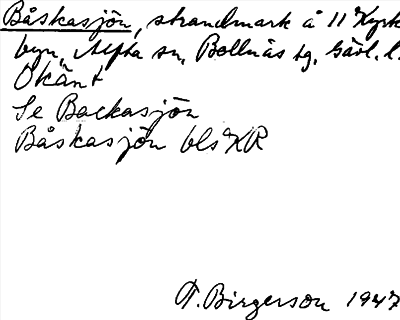 Båskasjön, strandmark å 11 Kyrk
byn, Alfta sn, Bollnäs tg. Gävl. l.
Okänt
Se Backasjön
Båskasjön bls XR
T. Birgerson 1947